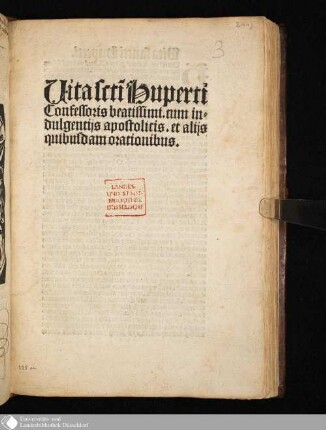 3
Uita scti Huperti
Confessoris beatissimi. cum in-
dulgentijs apostolicis. et alijs
quibusdam orationibus.
LANDES-
UND STADT-
BIBLIOTHEK
DÜSSELDORF
Universitäts- und
Landesbibliothek Düsseldorf